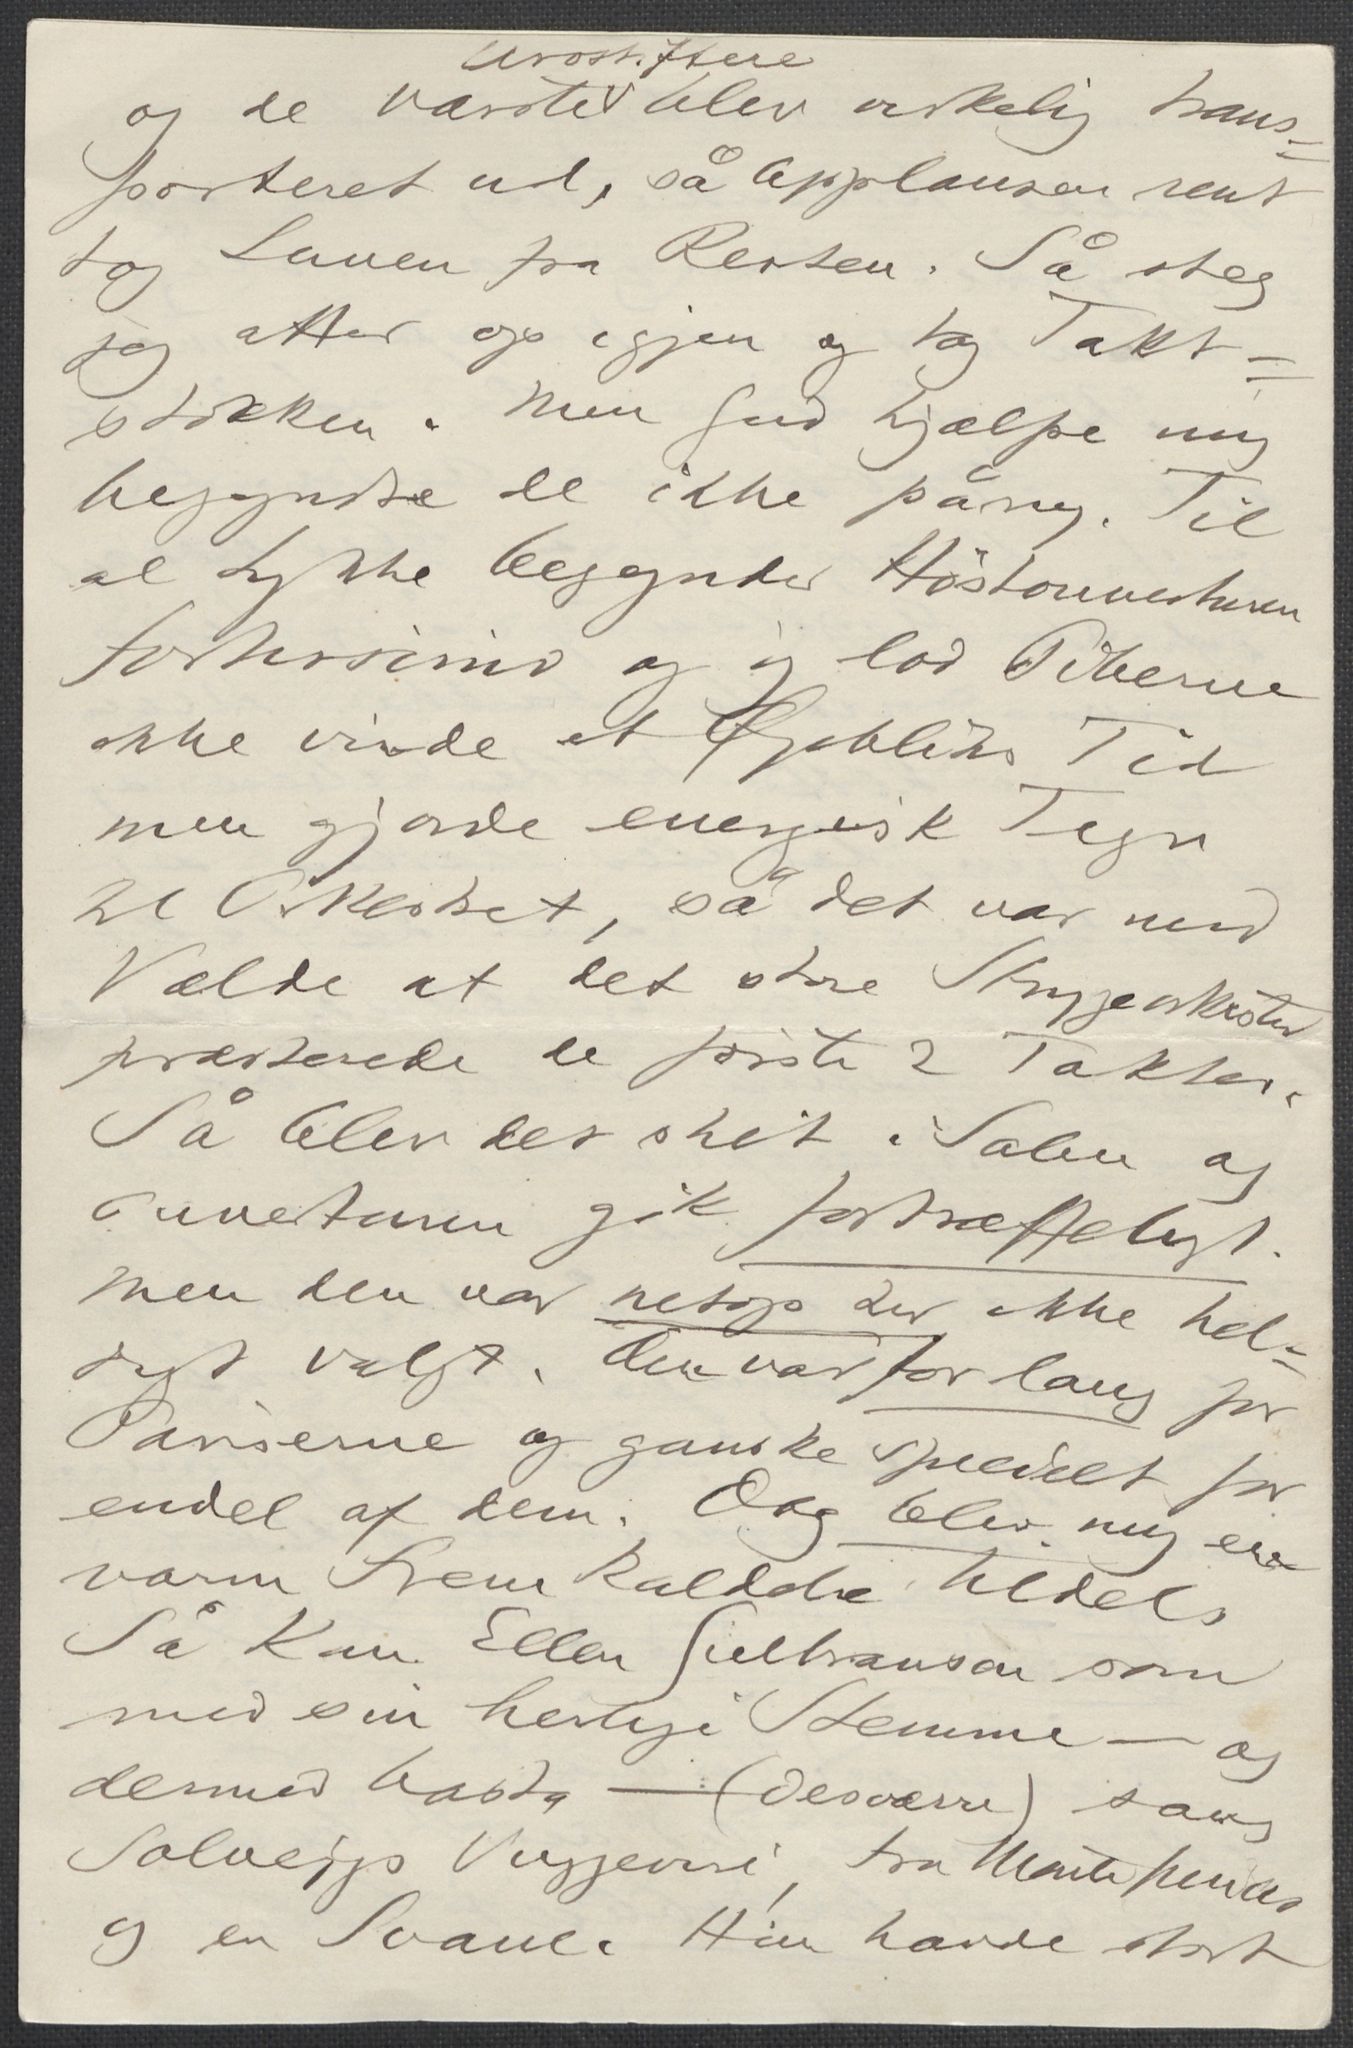 Urostiftere
og de værste blev virkelig trans=
porteret ud, så Applausen rent
tog Luven fra Resten. Så steg
jeg atter op igjen og tog Takt=
stokken. Men Gud hjælpe mig
begyndte de ikke påny. Til
al Lykke begynder Höstouverturen
fortissimo og jeg lod Piberne
ikke vinde et Øjebliks Tid
men gjorde energisk Tegn
til Orkestret, så det var med
Vælde at det store Strygeorkester
præsterede de første 2 Takter.
Så blev det stilt i Salen og
Ouverturen gik fortræffeligt.
Men den var netop der ikke hel=
digt valgt. Den var for lang for
Pariserne og ganske specielt for
endel af dem. Dog blev mig en
varm Fremkaldelse tildels
Så kom Ellen Gulbranson som
med sin herlige Stemme — og
dermed basta — (desværre) sang
Solvejgs Vuggevise, fra Monte Pincio
og en Svane. Hun havde stort